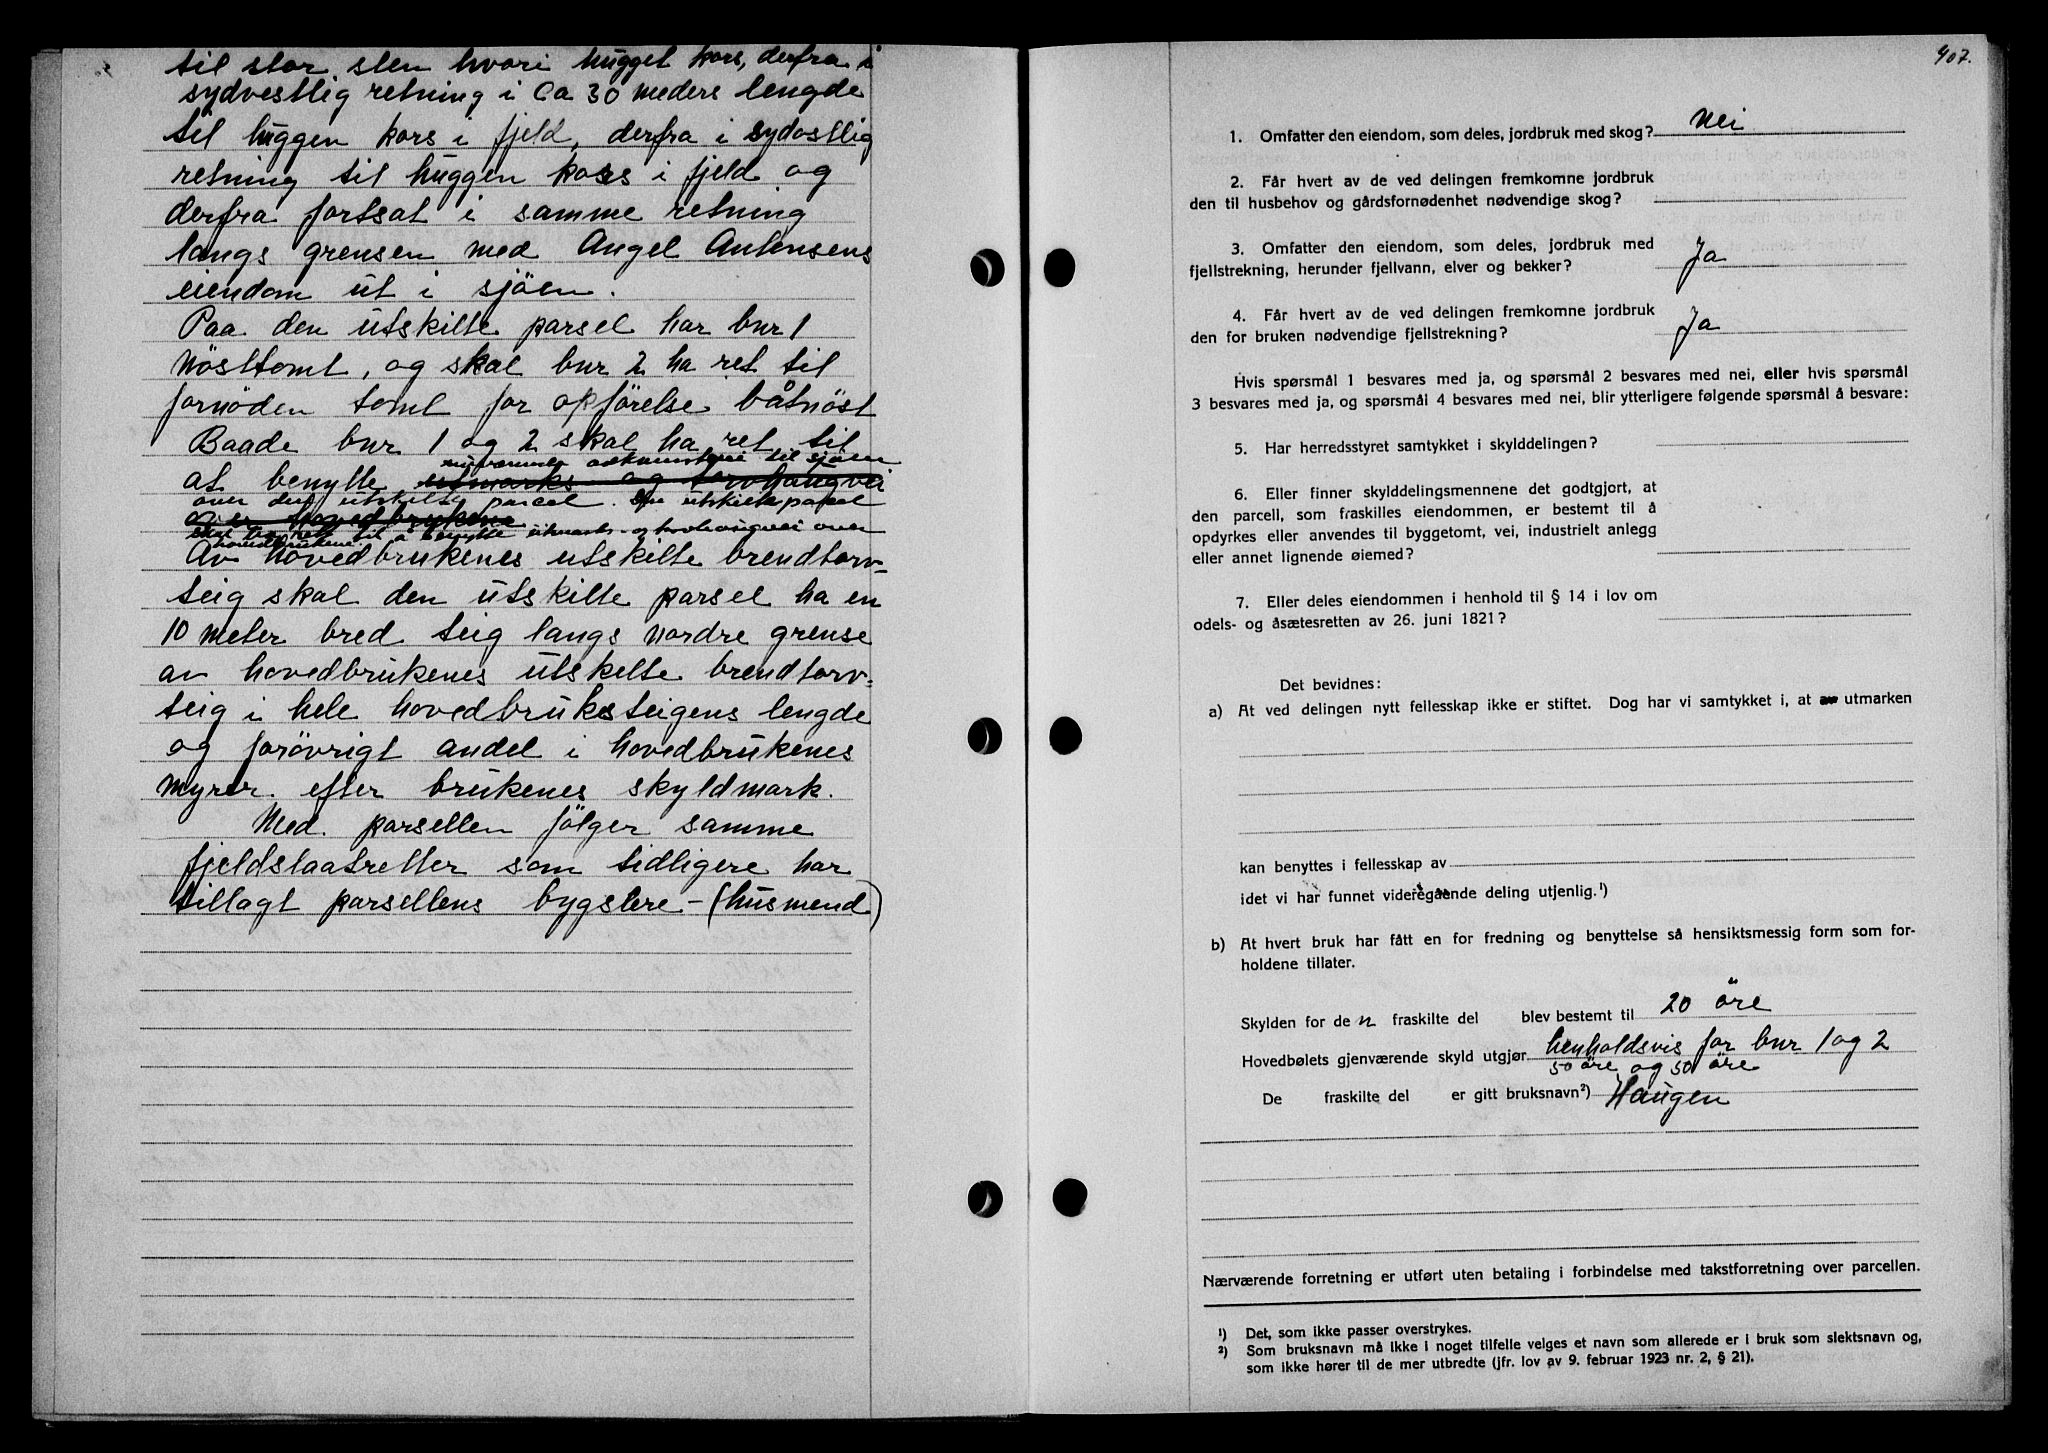 til stor sten hvori hugget kors, derfra i
sydvestlig retning i Ca 30 meders lengde
til huggen kors i fjeld, derfra i sydostlig
retning til huggen kors i fjeld og
derfra fortsat i samme retning
langs grensen med Angel Antonsens
eiendom ut i sjöen.
Paa den utskilte parsel har bnr 1
Nösttomt, og skal bnr 2 ha ret til
fornöden tomt for opförelse båtnöst
Baade bnr 1 og 2 skal ha ret til
nuværende adkomstvei til sjöen
at benytte utmarks og torvhaugvei
over den utskilte parcel. Den utskilte parcel
over hovedbrukene
skal ha rett til å benytte utmarks- og torvhaugvei over
hovedbrukene.
Av hovedbrukenes utskilte brendtorv-
teig skal den utskilte parsel ha en
10 meter bred teig langs nordre grense
av hovedbrukenes utskilte brendtorv-
teig i hele hovedbruksteigens lengde
og forövrigt andel i hovedbrukenes
Myrer efter brukenes skyldmark.
Med parsellen fölger samme
fjeldslaatretter som tidligere har
tillagt parsellens bygslere - (husmend)
407.
1. Omfatter den eiendom, som deles, jordbruk med skog? Nei
2. Får hvert av de ved delingen fremkomne jordbruk
den til husbehov og gårdsfornødenhet nødvendige skog?
3. Omfatter den eiendom, som deles, jordbruk med
fjellstrekning, herunder fjellvann, elver og bekker? Ja
4. Får hvert av de ved delingen fremkomne jordbruk
den for bruken nødvendige fjellstrekning? Ja
Hvis spørsmål 1 besvares med ja, og spørsmål 2 besvares med nei, eller hvis spørsmål
3 besvares med ja, og spørsmål 4 besvares med nei, blir ytterligere følgende spørsmål å besvare:
5. Har herredsstyret samtykket i skylddelingen?
6. Eller finner skylddelingsmennene det godtgjort, at
den parcell, som fraskilles eiendommen, er bestemt til å
opdyrkes eller anvendes til byggetomt, vei, industrielt anlegg
eller annet lignende øiemed?
7. Eller deles eiendommen i henhold til § 14 i lov om
odels- og åsætesretten av 26. juni 1821?
Det bevidnes:
a) At ved delingen nytt fellesskap ikke er stiftet. Dog har vi samtykket i, at av utmarken
kan benyttes i fellesskap av
idet vi har funnet videregående deling utjenlig.¹)
b) At hvert bruk har fått en for fredning og benyttelse så hensiktsmessig form som for-
holdene tillater.
Skylden for den fraskilte del blev bestemt til 20 öre
Hovedbølets gjenværende skyld utgjør henholdsvis for bnr 1 og 2
50 öre og 50 öre
De fraskilte del er gitt bruksnavn²) Haugen
Nærværende forretning er utført uten betaling i forbindelse med takstforretning over parcellen.
¹) Det, som ikke passer overstrykes.
²) Som bruksnavn må ikke i noget tilfelle velges et navn som allerede er i bruk som slektsnavn og,
som ikke hører til de mer utbredte (jfr. lov av 9. februar 1923 nr. 2, § 21).